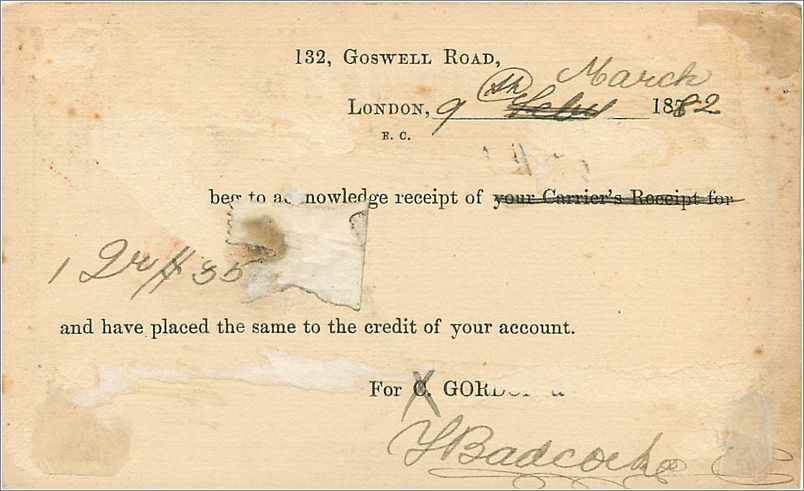 132, GOSWELL ROAD,
March
LONDON, 9th 1882
E. C.
beg to acknowledge receipt of your Carrier's Receipt for
1 Qr # 35
and have placed the same to the credit of your account.
For C. GORDON